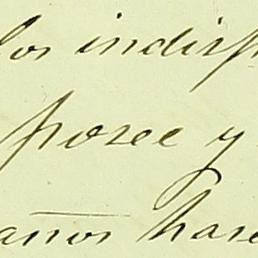 los indisp
posee y
años hace